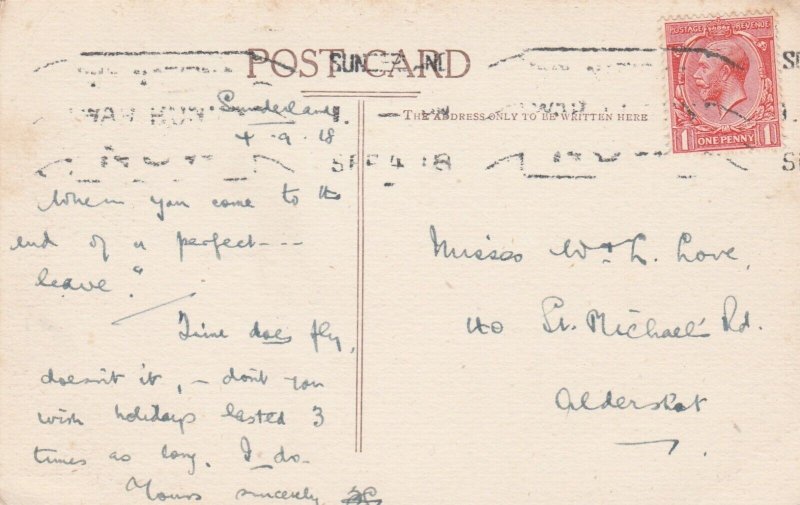 POST CARD
THE ADDRESS ONLY TO BE WRITTEN HERE
POSTAGE REVENUE
1 ONE PENNY 1
SUN
WAR
NOW
SP 4 18
Sunderland
4.9.18
When you come to the
end of a perfect---
leave."
Time does fly,
doesn't it, – don't you
wish holidays lasted 3
times as long. I do.
Yours sincerely
Misses W & L. Love,
40 St. Michael's Rd.
Aldershot